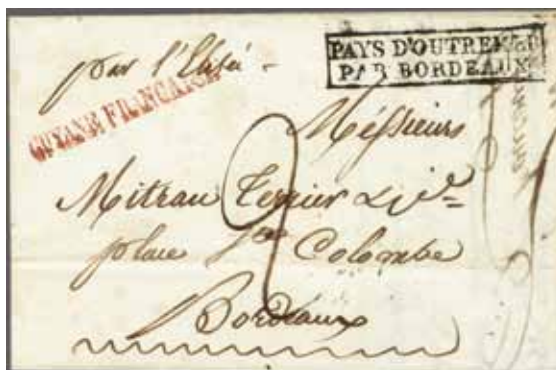 par l'Elisée
PAYS D'OUTREMER
PAR BORDEAUX
GUYANE FRANÇAISE
Messieurs
Mitrau Terrier & Cie
place Ste Colombe
Bordeaux
2